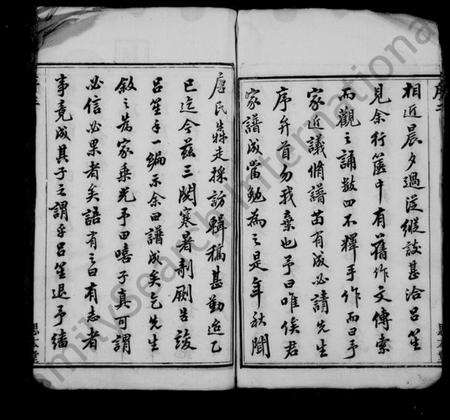 相近晨夕過從縱談甚洽呂笙
見余行篋中有舊作文傳索
而觀之誦數四不釋手作而曰予
家近議脩譜苗有成必請先生
序弁首勿我棄也予曰唯俟君
家譜成當勉為之是年秋聞
唇氏姝走採訪輯稿甚勤迨乙
巳迄今茲三閱寒暑剞劂告竣
呂笙手一編示余曰譜成矣乞先生
敘之為家乘光予曰嘻子真可謂
必信必果者矣語有之曰有志者
事竟成其子之謂乎呂笙退予繙